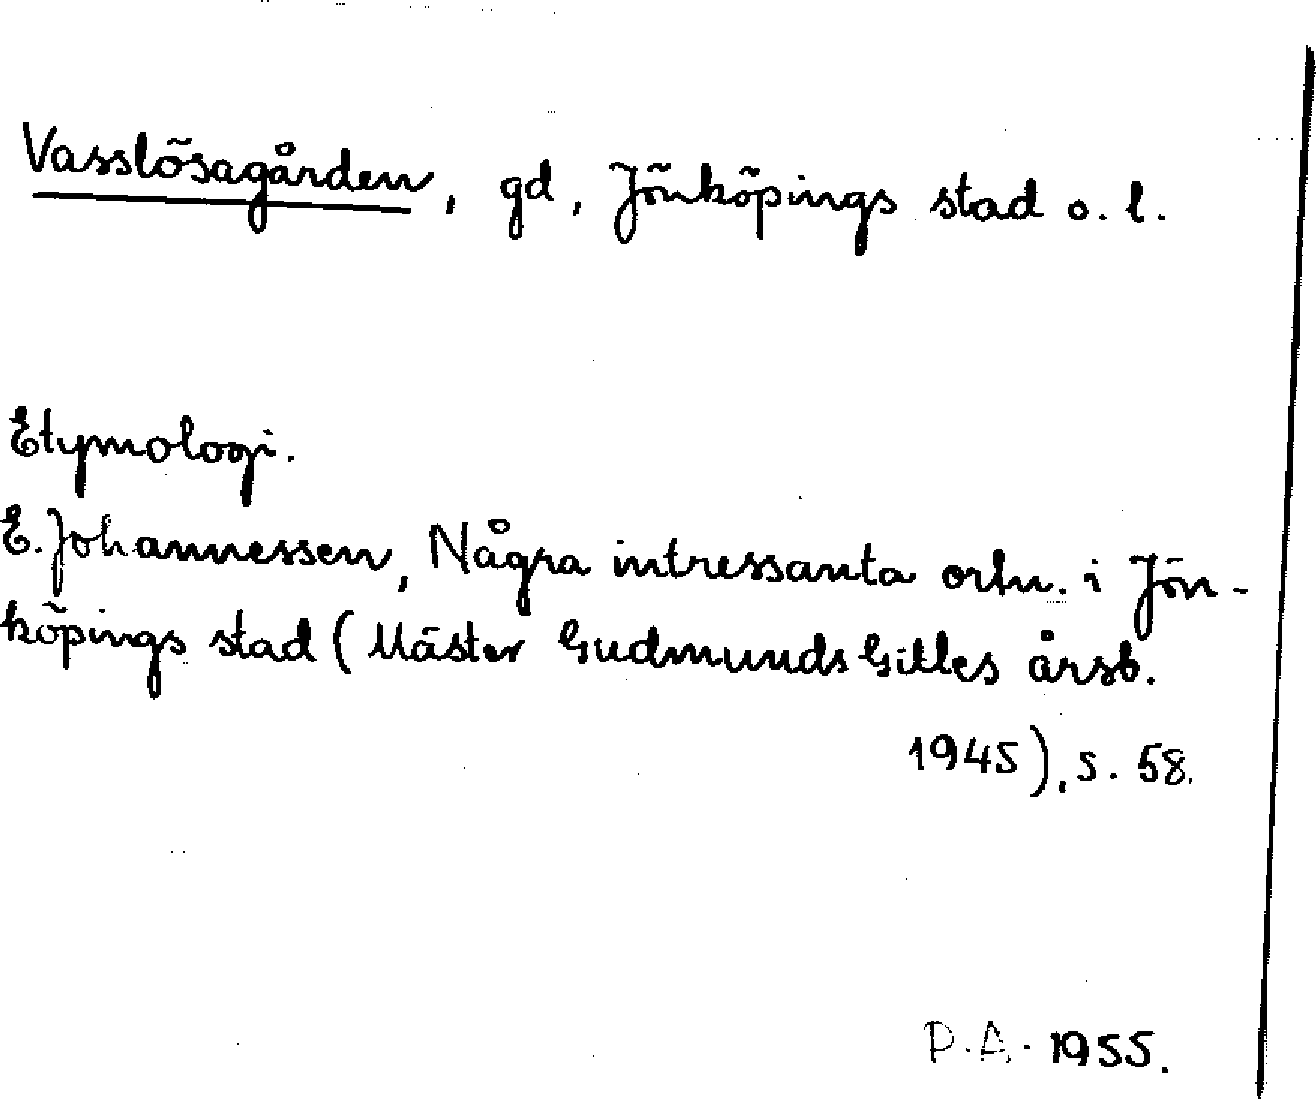 Vasslösagården, gd, Jönköpings stad o. l.
Etymologi.
E. Johannessen, Några intressanta ortn. i Jön-
köpings stad (Mäster Gudmunds Gilles årsb.
1945), s. 58.
P.A. 1955.